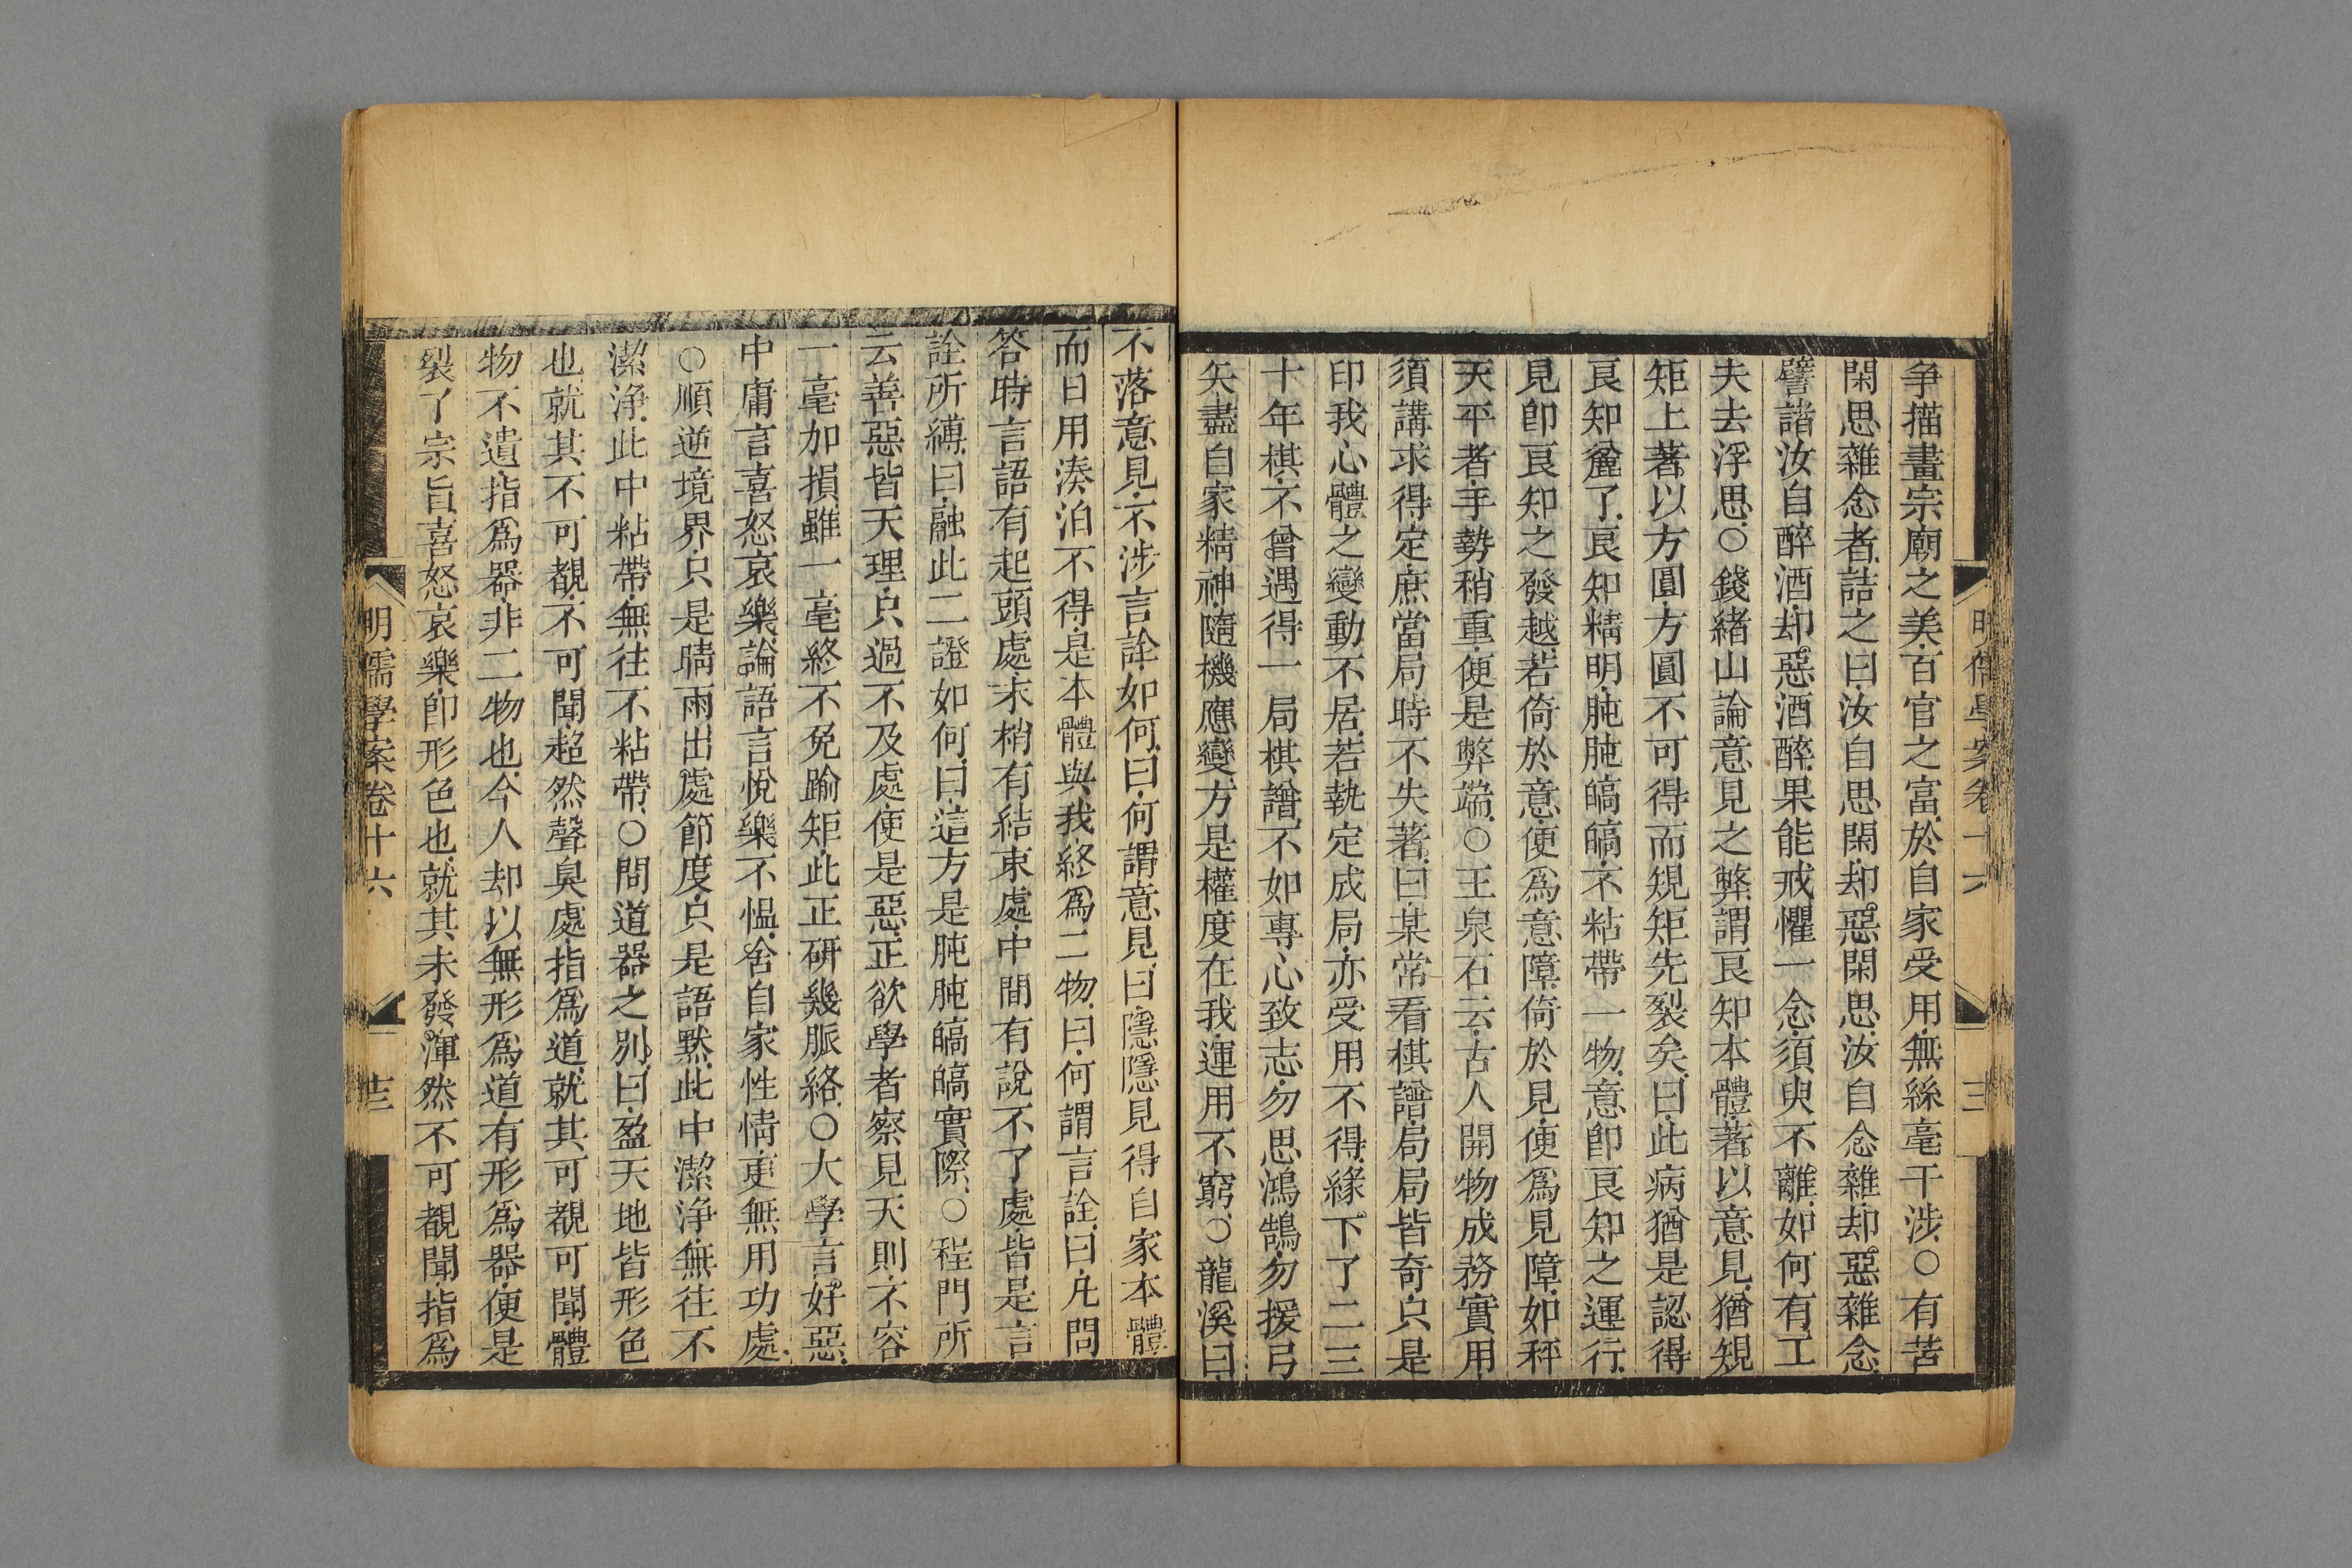 爭描畫宗廟之美百官之富於自家受用無絲毫干涉○有苦
閑思雜念者詰之曰汝自思閑却惡閑思汝自念雜却惡雜念
譬諸汝自醉酒却惡酒醉果能戒懼一念須臾不離如何有工
夫去浮思○錢緒山論意見之弊謂良知本體著以意見猶規
矩上著以方圓方圓不可得而規矩先裂矣曰此病猶是認得
良知麄了良知精明肫肫皜皜不粘帶一物意卽良知之運行
見卽良知之發越若倚於意便爲意障倚於見便爲見障如秤
天平者手勢稍重便是弊端○王泉石云古人開物成務實用
須講求得定庶當局時不失著曰某常看棋譜局局皆奇只是
印我心體之變動不居若執定成局亦受用不得緣下了二三
十年棋不曾遇得一局棋譜不如專心致志勿思鴻鵠勿援弓
矢盡自家精神隨機應變方是權度在我運用不窮○龍溪曰
不落意見不涉言詮如何曰何謂意見曰隱隱見得自家本體
而日用湊泊不得是本體與我終爲二物曰何謂言詮曰凡問
答時言語有起頭處末梢有結束處中間有說不了處皆是言
詮所縛曰融此二證如何曰這方是肫肫皜皜實際○程門所
云善惡皆天理只過不及處便是惡正欲學者察見天則不容
一毫加損雖一毫終不免踰矩此正硏幾脈絡○大學言好惡
中庸言喜怒哀樂論語言悅樂不慍舍自家性情更無用功處
○順逆境界只是晴雨出處節度只是語默此中潔淨無往不
潔淨此中粘帶無往不粘帶○問道器之別曰盈天地皆形色
也就其不可覩不可聞超然聲臭處指爲道就其可覩可聞體
物不遺指爲器非二物也今人却以無形爲道有形爲器便是
裂了宗旨喜怒哀樂卽形色也就其未發渾然不可覩聞指爲
明儒學案卷十六
十三